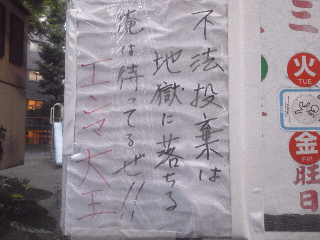 不法投棄は
地獄に落ちる
俺は待ってるぜ!!
エンマ大王
三
火
TUE
金
FRI
曜
日